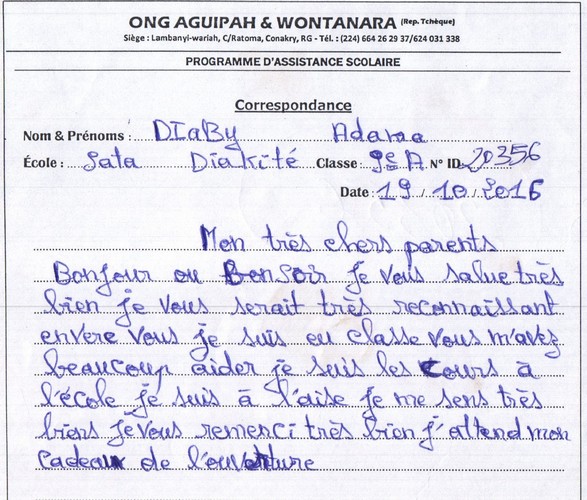 ONG AGUIPAH & WONTANARA (Rep. Tchèque)
Siège : Lambanyi-wariah, C/Ratoma, Conakry, RG - Tél. : (224) 664 26 29 37/624 031 338
PROGRAMME D'ASSISTANCE SCOLAIRE
Correspondance
Nom & Prénoms : DIaBy Adama
École : Sata Diakité Classe : 9è A N° ID: 20356
Date : 19 / 10 / 2016
Mon très chers parents
Bonjour ou Bonsoir je vous salue très
bien je vous serait très reconnaissant
envere vous je suis eu classe vous m'avez
beaucoup aider je suis les cours à
l'école je suis à l'aise je me sens très
biens je vous remerci très bien j'attend mon
cadeau de l'ouverture